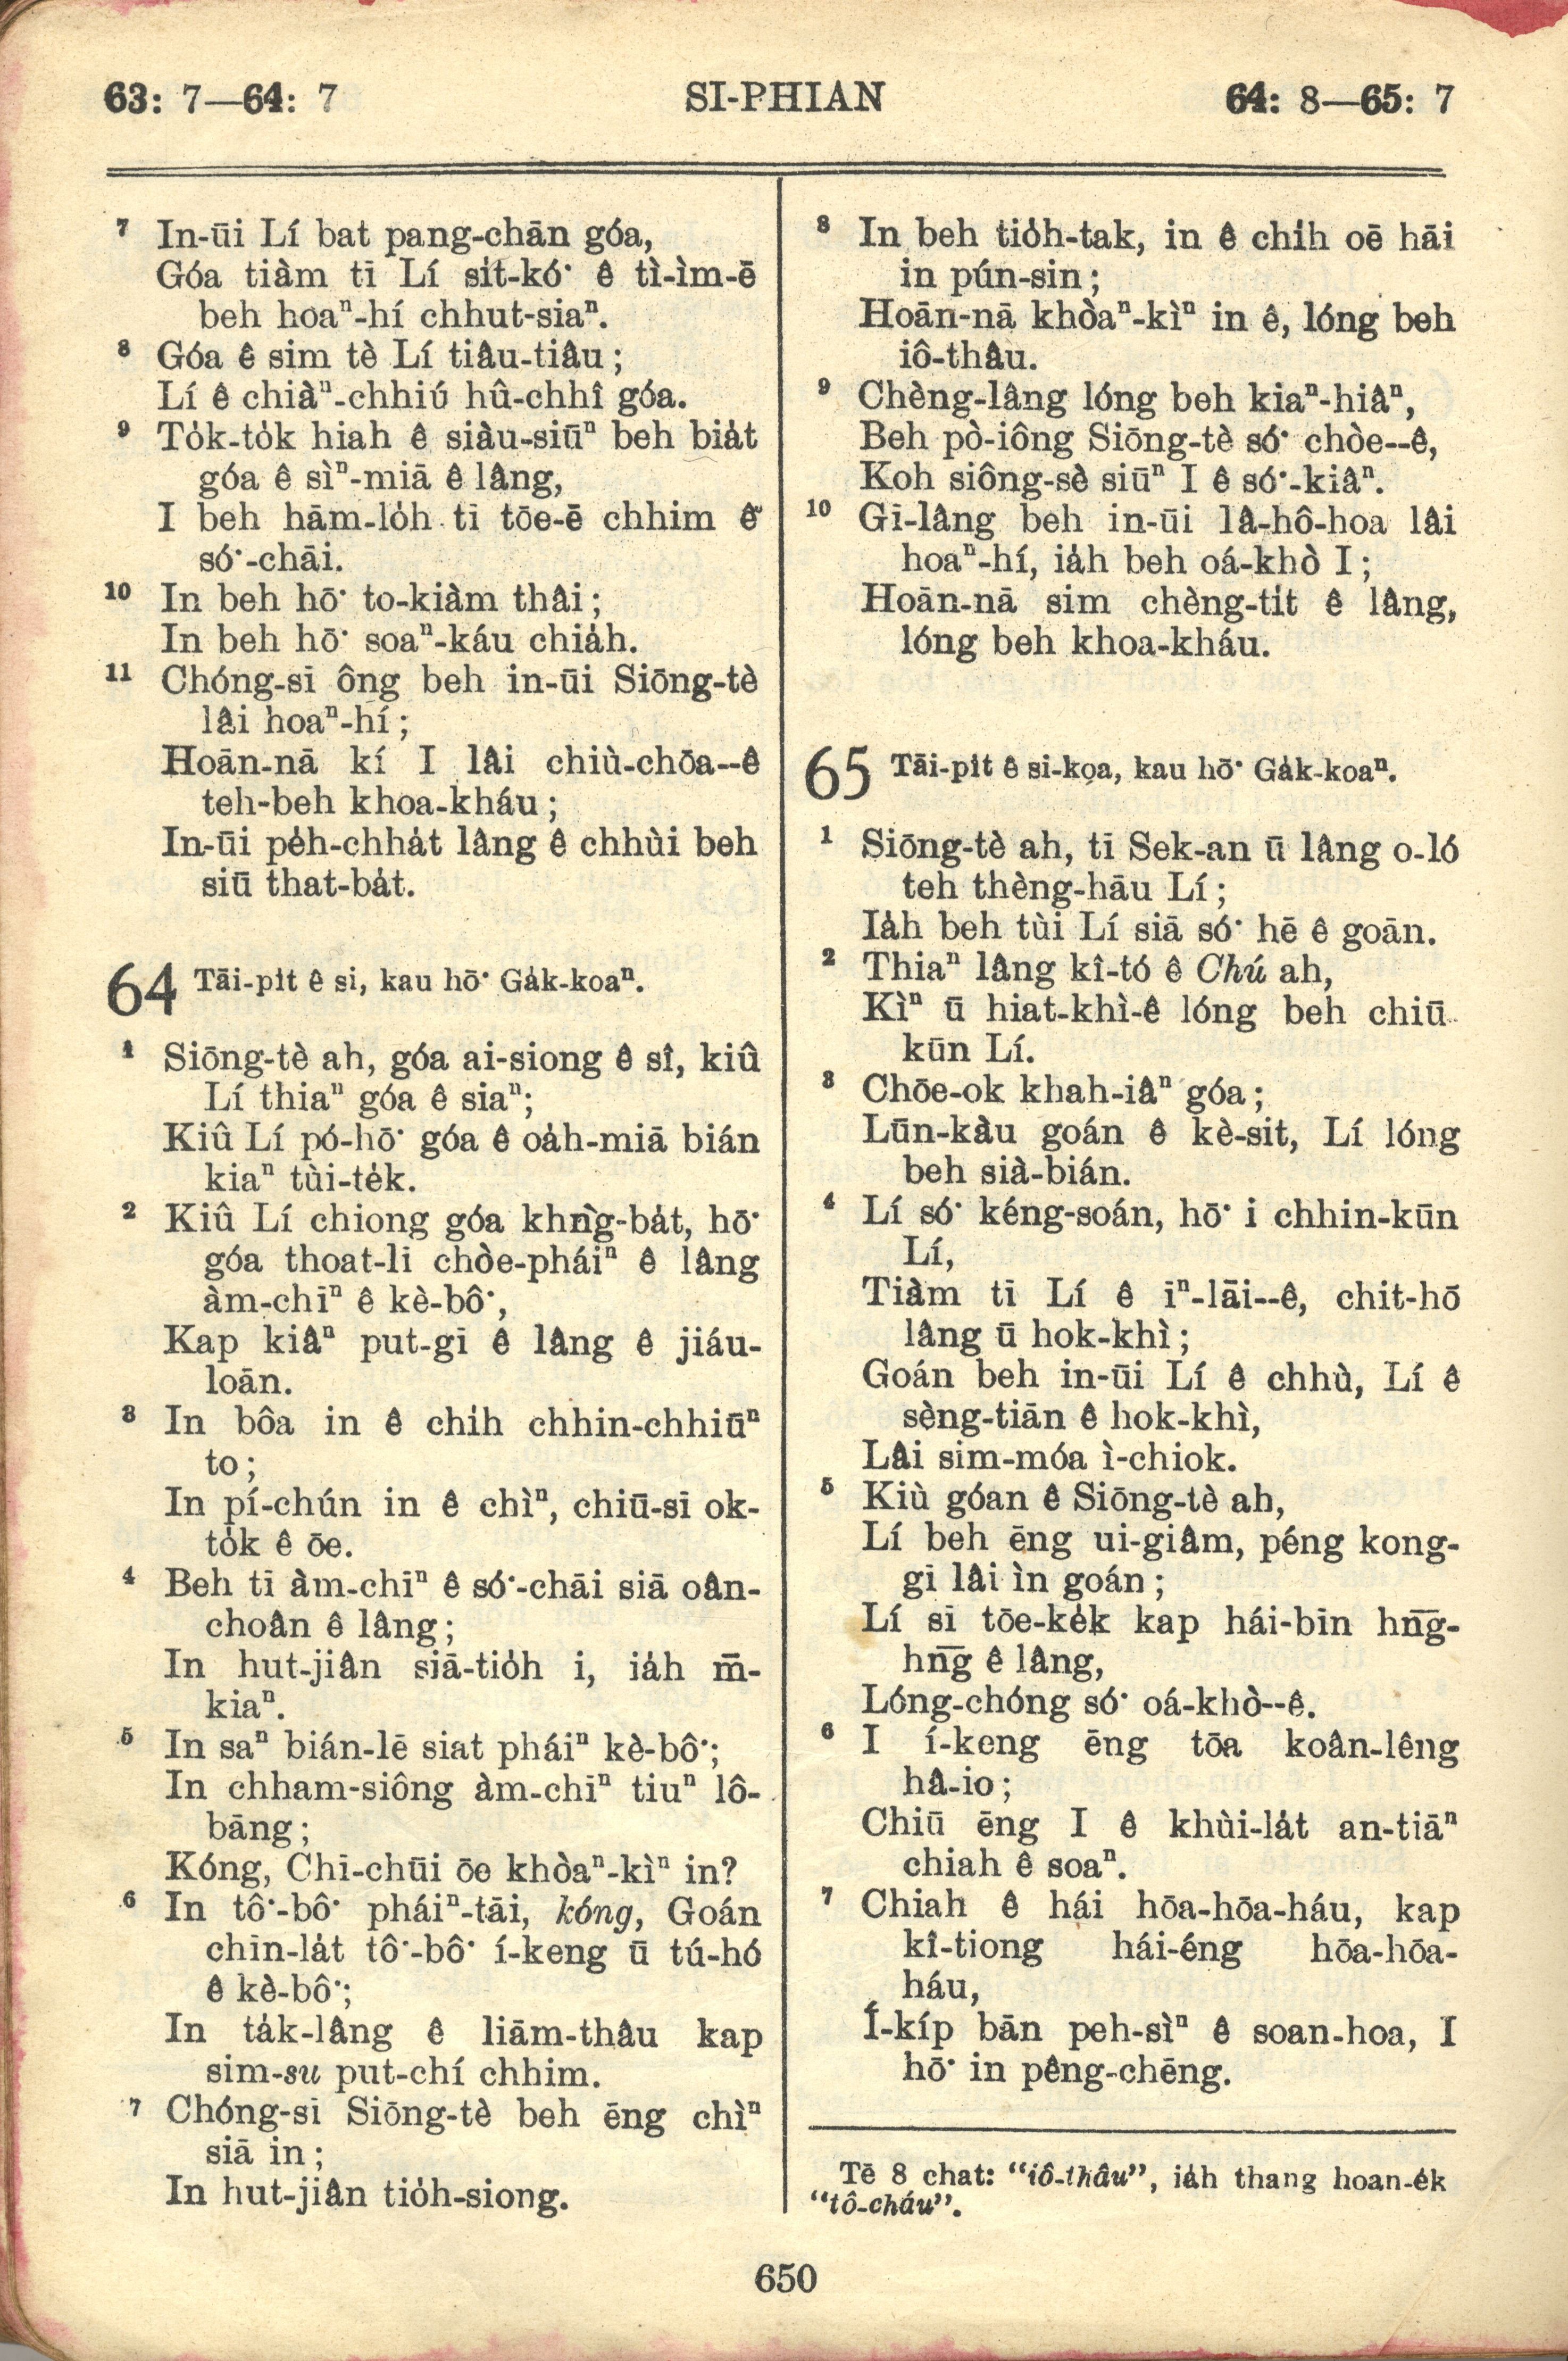 63: 7—64: 7
SI-PHIAN
64: 8—65: 7
7 In-ūi Lí bat pang-chān góa,
Góa tiàm tī Lí si̍t-kó͘ ê tì-ìm-ē
beh hoaⁿ-hí chhut-siaⁿ.
8 Góa ê sim tè Lí tiâu-tiâu;
Lí ê chiàⁿ-chhiú hû-chhî góa.
9 To̍k-to̍k hiah ê siàu-siūⁿ beh bia̍t
góa ê sìⁿ-miā ê lâng,
I beh hām-lo̍h tī tōe-ē chhim ê
só͘-chāi.
10 In beh hō͘ to-kiàm thâi;
In beh hō͘ soaⁿ-káu chia̍h.
11 Chóng-sī ông beh in-ūi Siōng-tè
lâi hoaⁿ-hí;
Hoān-nā kí I lâi chiù-chōa--ê
teh-beh khoa-kháu;
In-ūi pe̍h-chha̍t lâng ê chhùi beh
siū that-ba̍t.
64 Tāi-pi̍t ê si, kau hō͘ Ga̍k-koaⁿ.
1 Siōng-tè ah, góa ai-siong ê sî, kiû
Lí thiaⁿ góa ê siaⁿ;
Kiû Lí pó-hō͘ góa ê oa̍h-miā bián
kiaⁿ tùi-te̍k.
2 Kiû Lí chiong góa khǹg-ba̍t, hō͘
góa thoat-lī chòe-pháiⁿ ê lâng
àm-chīⁿ ê kè-bô͘,
Kap kiâⁿ put-gī ê lâng ê jiáu-
loān.
3 In bôa in ê chi̍h chhin-chhiūⁿ
to;
In pí-chún in ê chìⁿ, chiū-sī ok-
to̍k ê ōe.
4 Beh tī àm-chīⁿ ê só͘-chāi siā oân-
choân ê lâng;
In hut-jiân siā-tio̍h i, ia̍h m̄-
kiaⁿ.
5 In saⁿ bián-lē siat pháiⁿ kè-bô͘;
In chham-siông àm-chīⁿ tiuⁿ lô-
bāng;
Kóng, Chī-chūi ōe khòaⁿ-kìⁿ in?
6 In tô͘-bô͘ pháiⁿ-tāi, kóng, Goán
chīn-la̍t tô͘-bô͘ í-keng ū tú-hó
ê kè-bô͘;
In ta̍k-lâng ê liām-thâu kap
sim-su put-chí chhim.
7 Chóng-sī Siōng-tè beh ēng chìⁿ
siā in;
In hut-jiân tio̍h-siong.
8 In beh tio̍h-tak, in ê chi̍h oē hāi
in pún-sin;
Hoān-nā khòaⁿ-kìⁿ in ê, lóng beh
iô-thâu.
9 Chèng-lâng lóng beh kiaⁿ-hiâⁿ,
Beh pò-iông Siōng-tè só͘ chòe--ê,
Koh siông-sè siūⁿ I ê só͘-kiâⁿ.
10 Gī-lâng beh in-ūi Iâ-hô-hoa lâi
hoaⁿ-hí, ia̍h beh oá-khò I;
Hoān-nā sim chèng-ti̍t ê lâng,
lóng beh khoa-kháu.
65 Tāi-pi̍t ê si-koa, kau hō͘ Ga̍k-koaⁿ.
1 Siōng-tè ah, tī Sek-an ū lâng o-ló
teh thèng-hāu Lí;
Ia̍h beh tùi Lí siā só͘ hē ê goān.
2 Thiaⁿ lâng kî-tó ê Chú ah,
Kìⁿ ū hiat-khì-ê lóng beh chiū
kūn Lí.
3 Chōe-ok khah-iâⁿ góa;
Lūn-kàu goán ê kè-sit, Lí lóng
beh sià-bián.
4 Lí só͘ kéng-soán, hō͘ i chhin-kūn
Lí,
Tiàm tī Lí ê īⁿ-lāi--ê, chit-hō
lâng ū hok-khì;
Goán beh in-ūi Lí ê chhù, Lí ê
sèng-tiān ê hok-khì,
Lâi sim-móa ì-chiok.
5 Kiù góan ê Siōng-tè ah,
Lí beh ēng ui-giâm, péng kong-
gī lâi ìn goán;
Lí sī tōe-ke̍k kap hái-bīn hn̄g-
hn̄g ê lâng,
Lóng-chóng só͘ oá-khò--ê.
6 I í-keng ēng tōa koân-lêng
hâ-io;
Chiū ēng I ê khùi-la̍t an-tiāⁿ
chiah ê soaⁿ.
7 Chiah ê hái hōa-hōa-háu, kap
kî-tiong hái-éng hōa-hōa-
háu,
Í-kíp bān peh-sìⁿ ê soan-hoa, I
hō͘ in pêng-chēng.
Tē 8 chat: “iô-thâu”, ia̍h thang hoan-e̍k
“tô-cháu”.
650